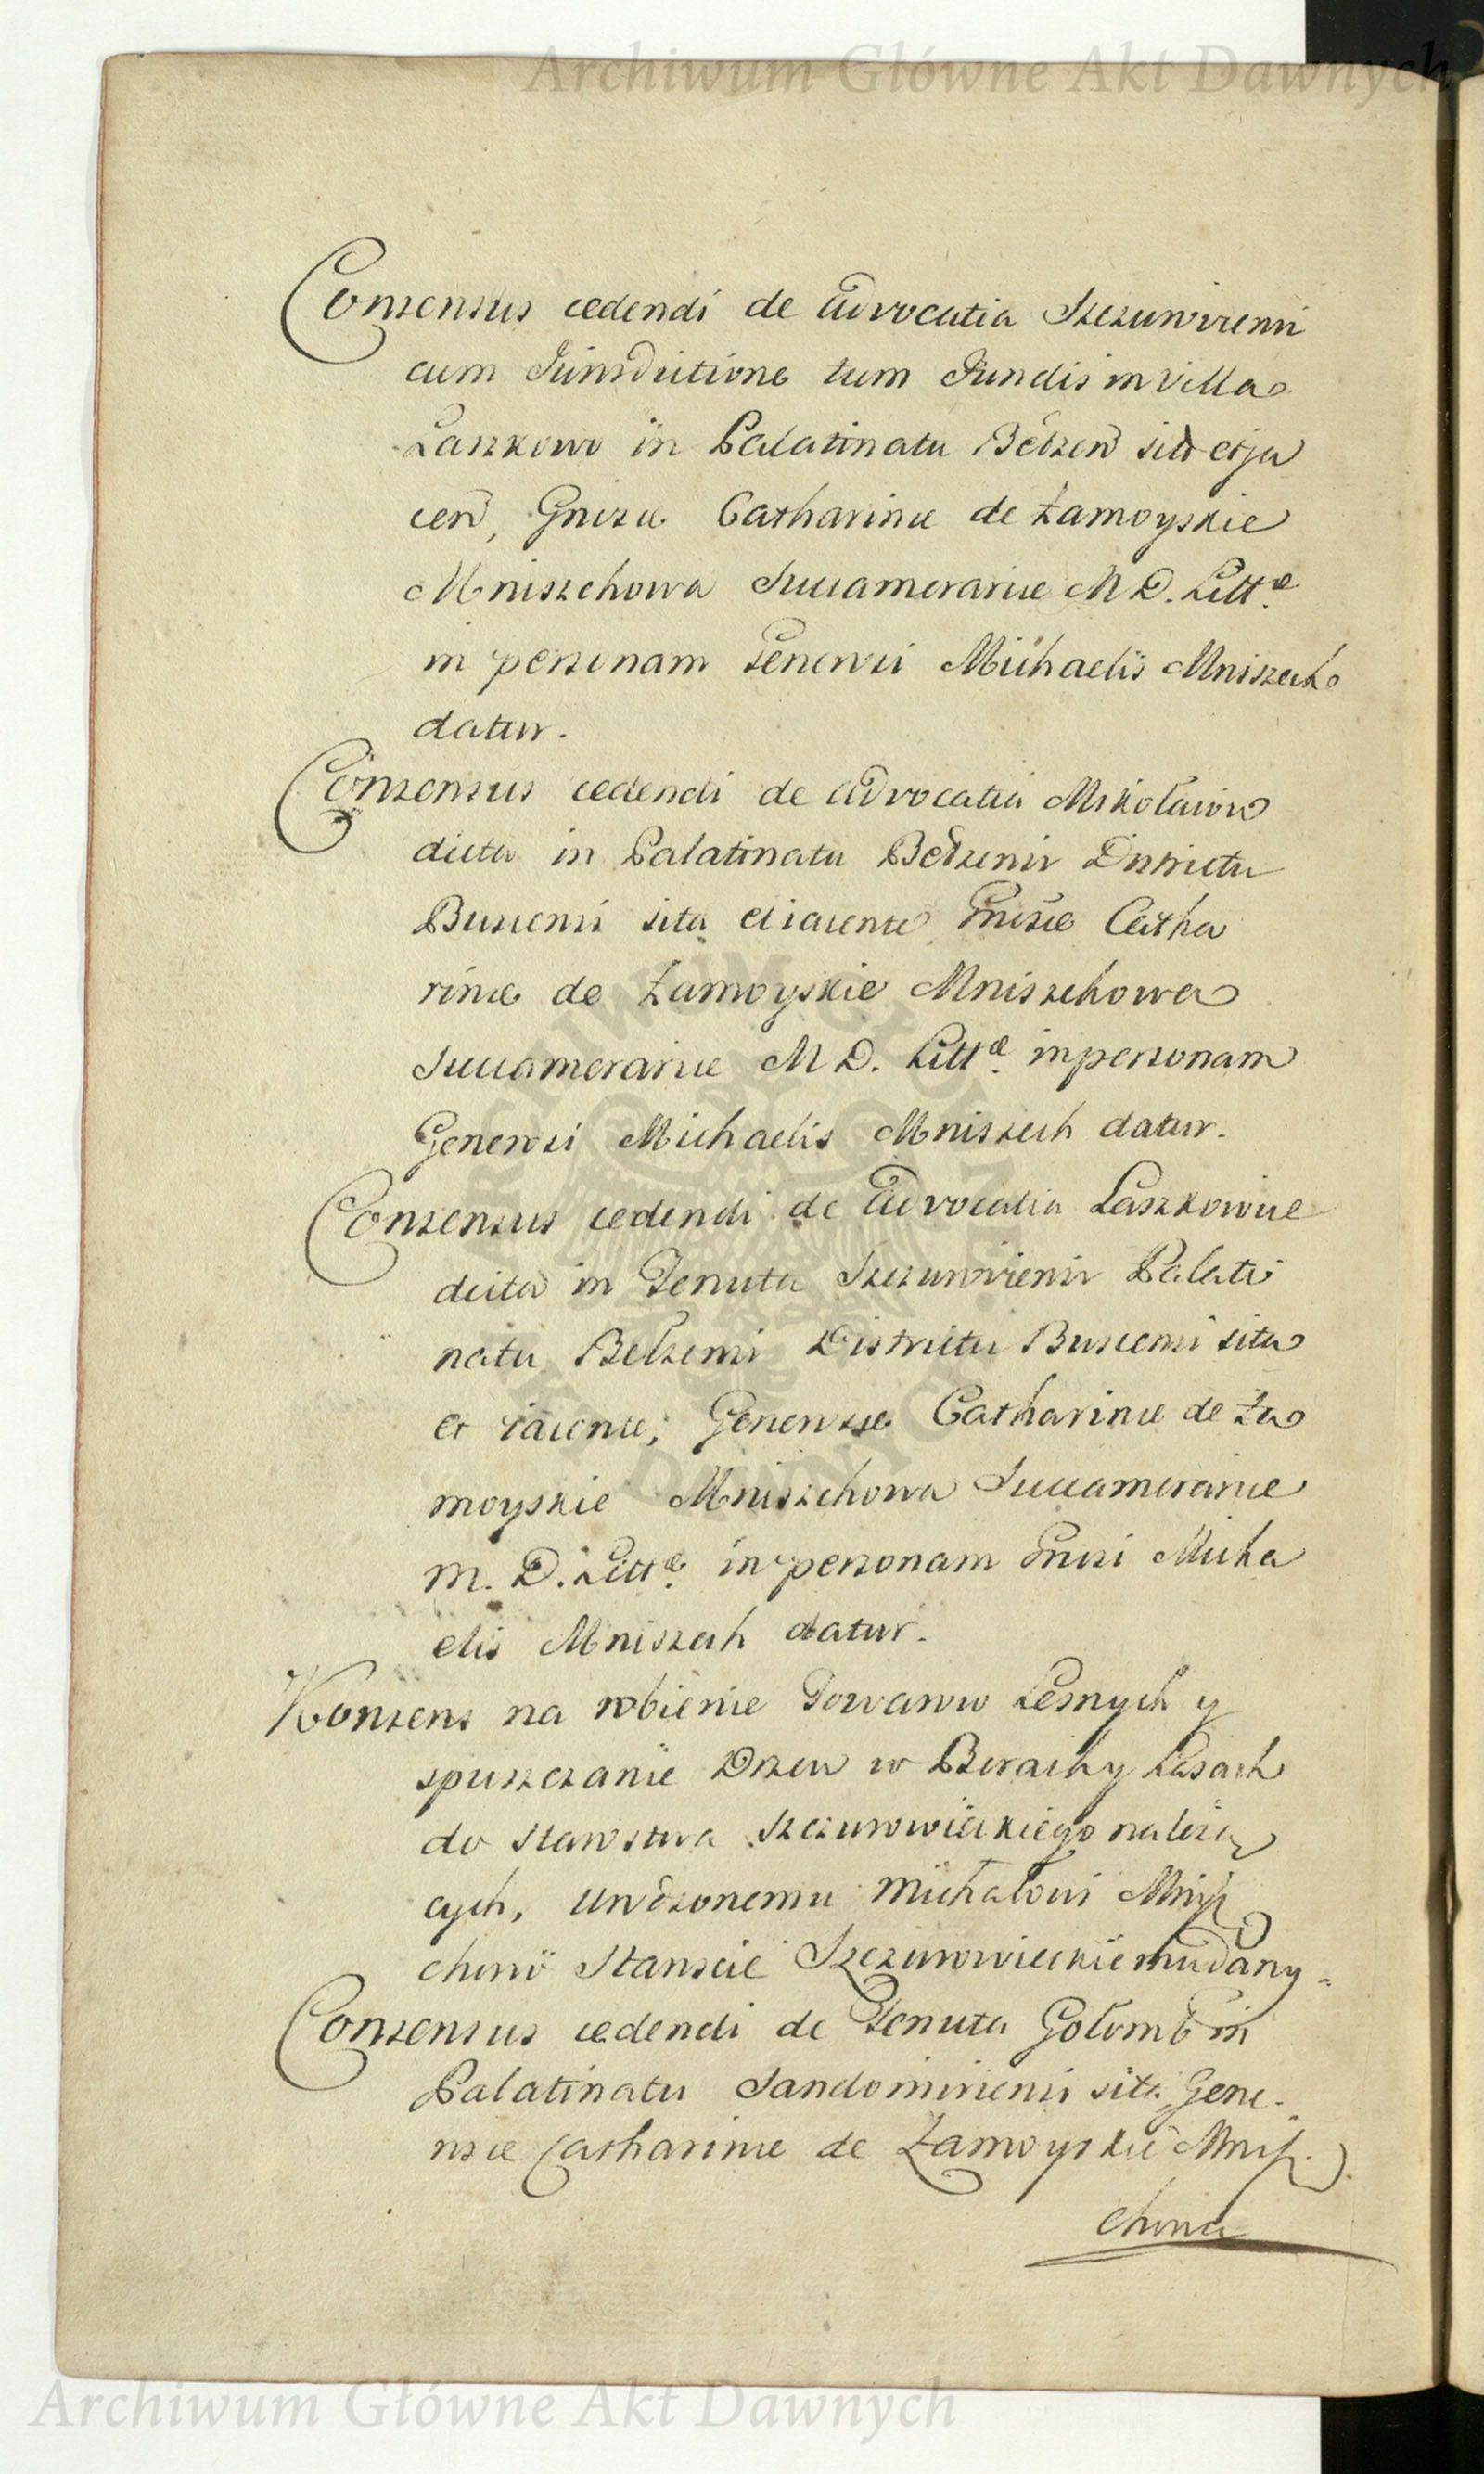 Archiwum Główne Akt Dawnych
Consensus cedendi de advocatia Szczurovicensi
cum Jurisdictione tum Fundis in Villa
Laszkowo in Palatinatu Bełzen sit et ja
cen, Gnrsæ Catharinæ de Zamoyskie
Mniszchowa Succamerariæ M D. Littæ.
in personam Generosi Michaelis Mniszech
datur.
Consensus cedendi de advocatia Mikołaiow
dicta in Palatinatu Bełzensi Districtu
Buscensi sita et iacente Gnrsæ Catha
rinæ de Zamoyskie Mniszchowa
Succamerariæ M D. Littæ. in personam
Generosi Michaelis Mniszech datur.
Consensus cedendi de advocatia Laszkowice
dicta in Tenuta Szczurovicensi Palati
natu Bełzensi Districtu Buscensi sita
et iacente, Generosæ Catharinæ de Za
moyskie Mniszchowa Succamerariæ
M. D. Littæ. in personam Gnrsi Micha
elis Mniszech datur.
Konsens na robienie Towarow Lesnych y
spuszczanie Drzew w Borach y Lasach
do Starostwa Szczurowieckiego należą
cych, Urodzonemu Michałowi Mnisz
chowi Staroscie Szczurowieckiemu dany.
Consensus cedendi de Tenuta Gołomb in
Palatinatu Sandomiriensi sita, Gene-
rosæ Catharinæ de Zamoyskie Mnisz.
chowa
Archiwum Główne Akt Dawnych